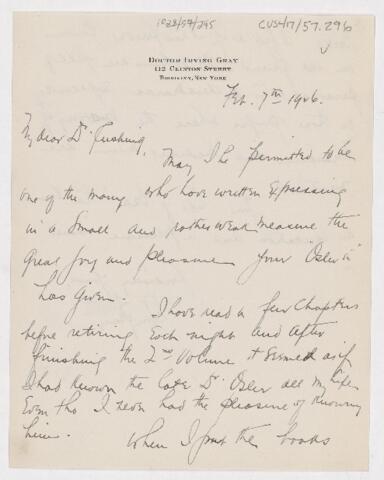 1023/57/295
CUS417/57.296
DOCTOR IRVING GRAY
112 CLINTON STREET
BROOKLYN, NEW YORK
Feb. 7th 1926.
My dear Dr Cushing.
May I be permitted to be
one of the many who have written expressing
in a small and rather weak measure the
great joy and pleasure your Osler
has given.
I have read a few chapters
before retiring each night and after
finishing the 2nd Volume it seemed as if
I had known the late Dr Osler all my life
Even tho I never had the pleasure of knowing
him.
When I put the books